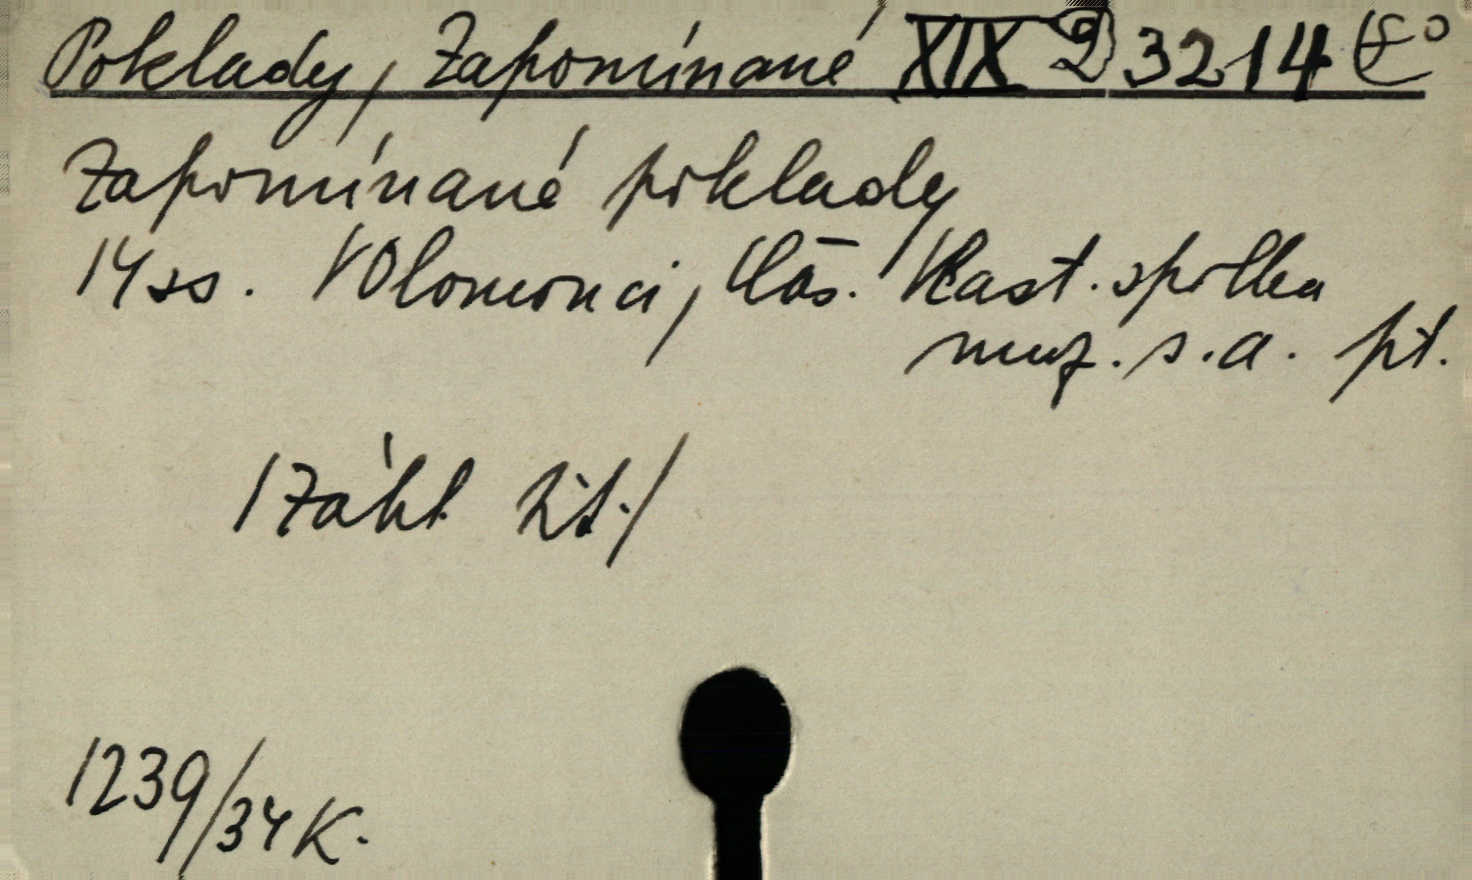 Poklady, Zapomínané XIX D 3214
Zapomínané poklady
14 ss. V Olomouci, Vlast. spolku
muz. s.a. pt.
/Zákl. lit./
1239/34 K.